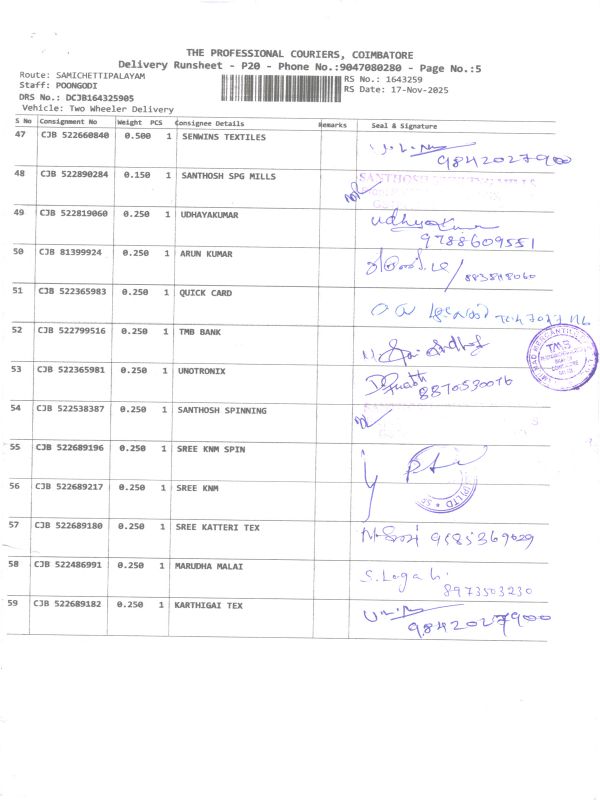 THE PROFESSIONAL COURIERS, COIMBATORE
Delivery Runsheet - P20 - Phone No.:9047080280 - Page No.:5
Route: SAMICHETTIPALAYAM RS No.: 1643259
Staff: POONGODI RS Date: 17-Nov-2025
DRS No.: DCJB164325905
Vehicle: Two Wheeler Delivery
S No Consignment No Weight PCS Consignee Details Remarks Seal & Signature
47 CJB 522660840 0.500 1 SENWINS TEXTILES
9842027900
48 CJB 522890284 0.150 1 SANTHOSH SPG MILLS SANTHOSH
49 CJB 522819060 0.250 1 UDHAYAKUMAR udhayakumar
9788609551
50 CJB 81399924 0.250 1 ARUN KUMAR
51 CJB 522365983 0.250 1 QUICK CARD
52 CJB 522799516 0.250 1 TMB BANK TMB
53 CJB 522365981 0.250 1 UNOTRONIX
8870530076
54 CJB 522538387 0.250 1 SANTHOSH SPINNING
55 CJB 522689196 0.250 1 SREE KNM SPIN
56 CJB 522689217 0.250 1 SREE KNM (P) LTD
57 CJB 522689180 0.250 1 SREE KATTERI TEX
58 CJB 522486991 0.250 1 MARUDHA MALAI
8973503230
59 CJB 522689182 0.250 1 KARTHIGAI TEX
9842027900